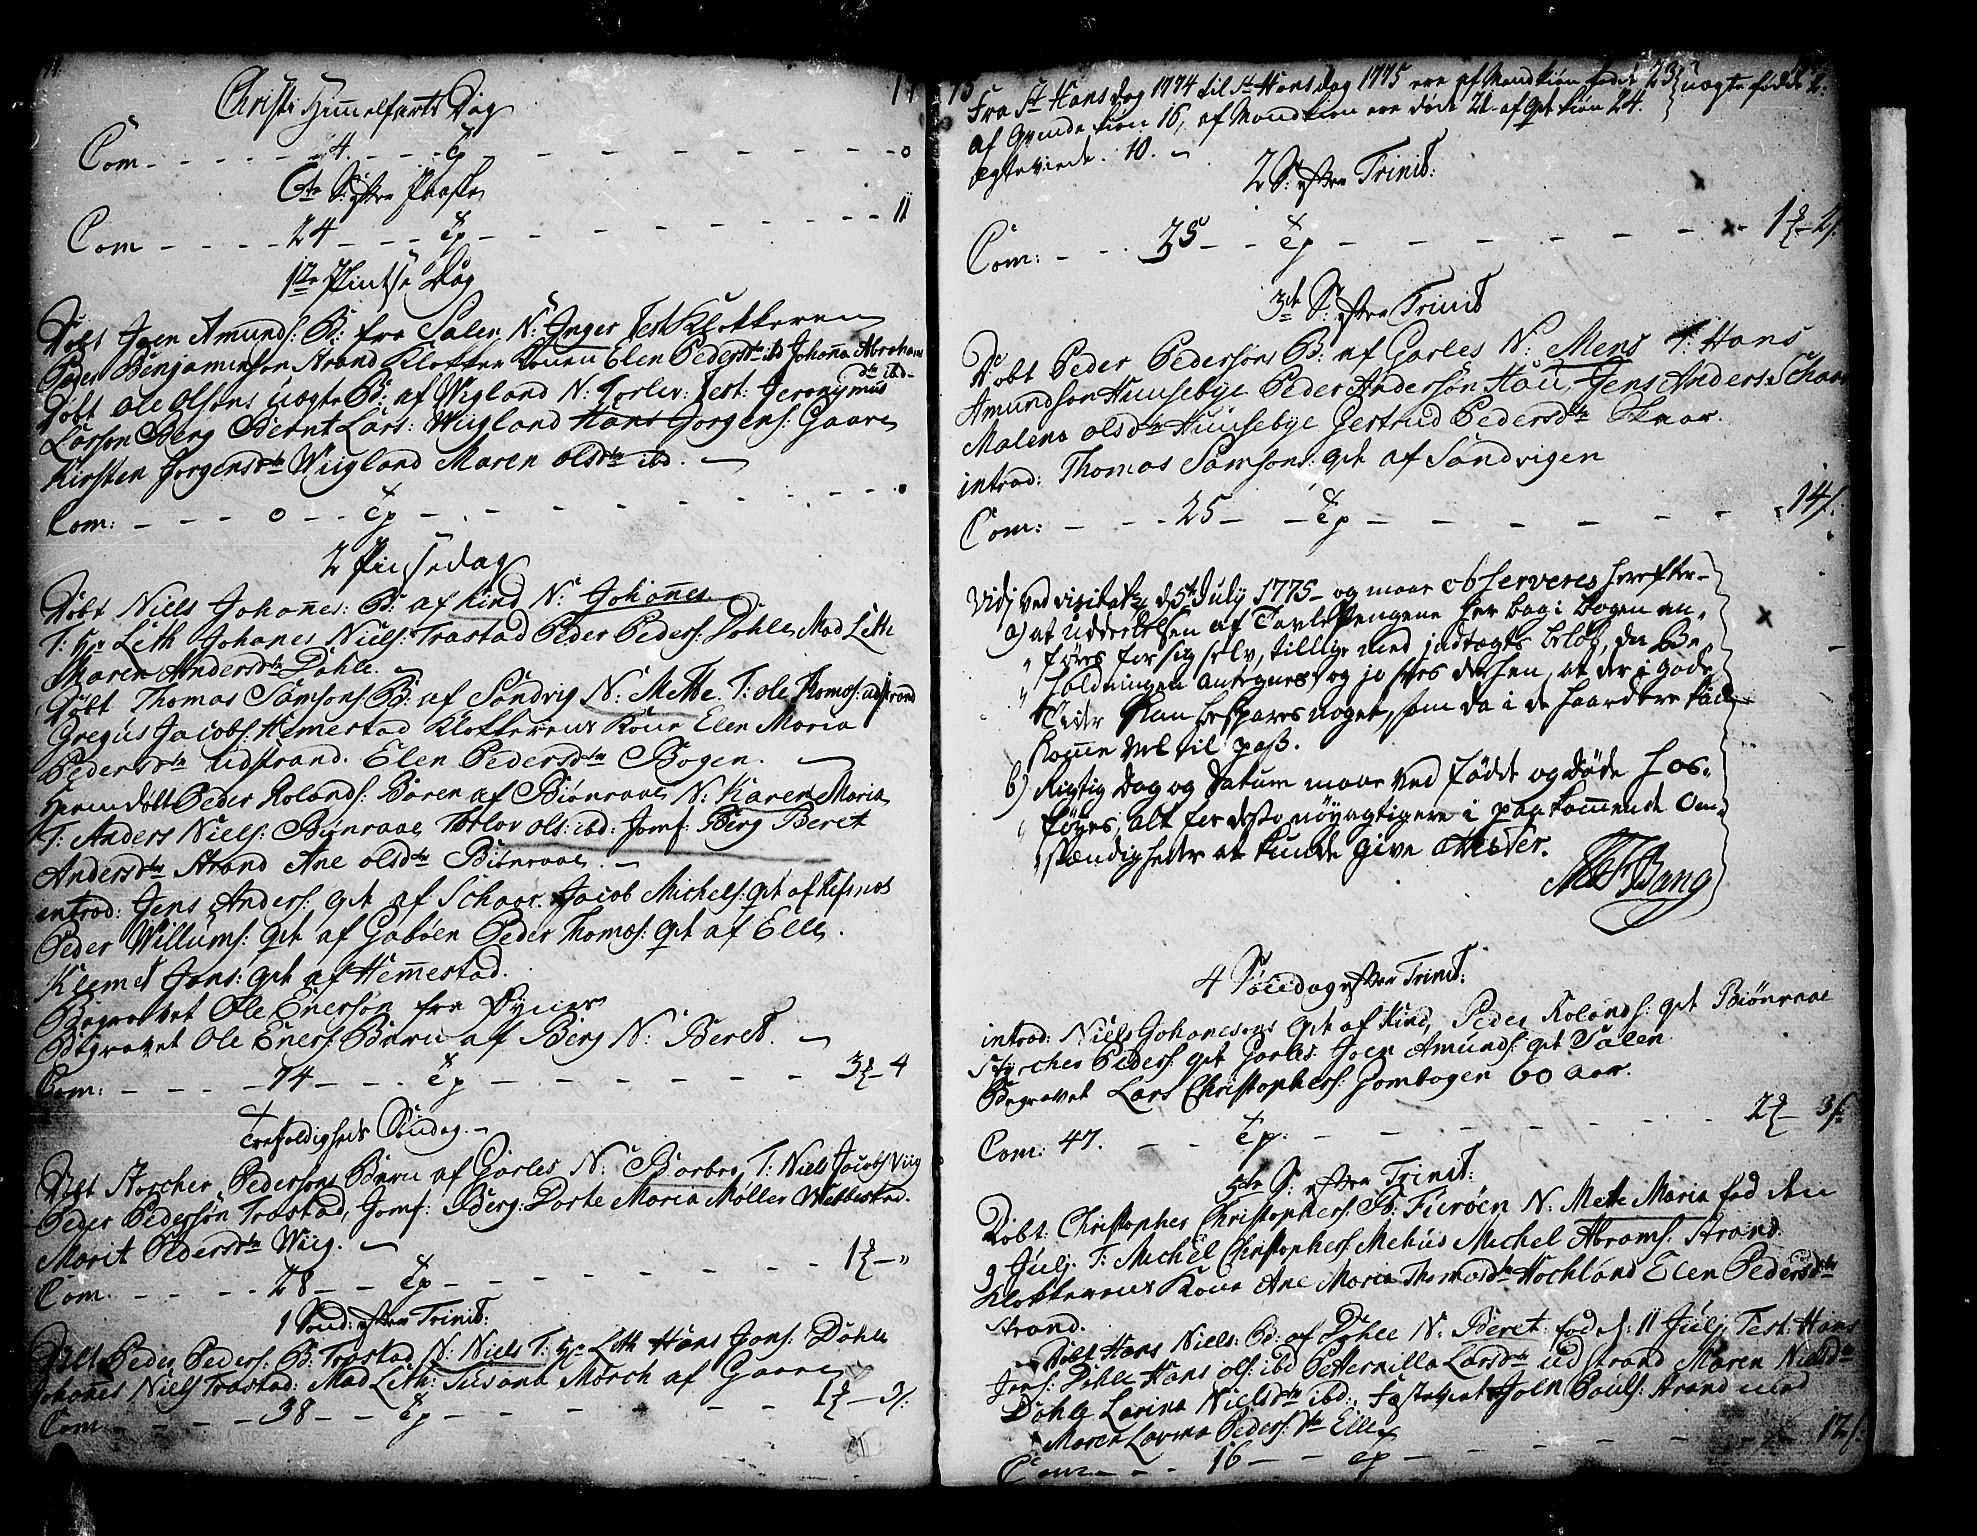 Christi Himmelfarts Dag
Com - - - - - 4. - - - - - - - - - 0
6te S: efter Paaske
Com - - - - 24 - - - - - - - - - - 11
1te Pintse Dag
Døbt Joen Amunds: B: fra Salen N: Inger Test Klokkeren
Peder Benjaminsøn Strand Klokker Konen Elen Pedersdtr ibd Johanna Abrahams
dtr ibd -
Døbt Ole Olsens uægte B: af Wigland N: Torlev: Test: Jeronymus
Larsøn Berg Bernt Lars: Wigland Hans Jørgens: Gaare
Kirsten Jørgensdtr Wiigland Maren Olsdtr ibd. -
Com: - - - 0 - - - - - - - - - - 0
2 Pinsedag
Døbt Niels Johannes: B: af Kind N: Johannes
T: Hr Leth Johanes Niels: Trastad Peder Peders: Dohle Mad Leth
Maren Andersdtr Dohle.
Døbt Thomas Samsons B: af Sandvig N: Mette. T: Ole Thomes: udstrand
Gregus Jacobs: Hemmestad Klokkerens Kone Elen Maria
Pedersdtr udstrand. Elen Pedersdtr Bogen. -
Hiemdøbt Peder Rolands: Baren af Biønraae N: Karen Maria
T: Anders Niels: Biønraae Torlov Ols: ibd: Jomf: Berg Beret
Andersdtr Strand Ane Olsdtr Biønraae. -
introd: Jens Anders: qvt af Schaar. Jacob Michels: qvt af Refsnes
Peder Willums: qvt af Gabøen Peder Thomes: qvt af Elle.
Klemet Jons: qvt af Hemmestad.
Begravet Ole Enersøn fra
Begravet Ole Eners: Barn af Berg N: Beret. -
Com: - - - 74 - - - - - - - - - - 3 - 4
Trefoldigheds Søndag. -
Døbt Storcher Pedersøns Barn af Garles N: Barbro, T: Niels Jacobs Wiig
Peder Pedersøn Trastad, Jomf: Berg: Dorte Maria Møller Webbestad.
Marit Pedersdtr Wiig. -
Com. - - - 28 - - - - - - - - - - 1 - "
1 Sønd: efter Trinit:
Døbt Peder Peders: B: Trastad N: Niels T: Hr Leth Hans Jons: Dohle
Johannes Niels Trastad: Mad Leth: Susana Morch af Gaare
Com - - - 38 - - - - - - - - - - 1
75
Fra St Hans dag 1774 til St Hans dag 1775 ere af Mandkiøn fødde 23 uægte fødde 2.
af Qvinde kiøn 16, af Mandkiøn ere døde 21 af Qvt kiøn 24.
ægteviede. 10. -
2 S: efter Trinit:
Com: - - - 25 - - - - - - - - - 1
3de S: efter Trinit
Døbt Peder Pedersøns B: af Garles N: Mens T: Hans
Amundsøn Huusebye Peder Andersøn Hou Jens Anders: Schaar
Malena Olsdtr Huusebye Gertrud Pedersdtr Skaar.
introd: Thomas Samsons: qvt af Sandvigen
Com: - - - 25 - - - - - - - - - 14 s.
Vidi ved visitatz d 5t July 1775 - og maae observeres herefter -
a) at uddeelelsen af Tavlepengene her bag i bogen an"
" føres for sig selv, tillige med indtægts beløb, da Be"
" holdningen antegnes og jo sees derhen, at der i gode
" Tider kan bespares noget, som da i de haardere kan
komme vel til pass.
b) Rigtig Dag og Datum maae ved fødde og døde hos"
" føyes, alt for desto nøyagtigere i paakommende Om"
" stændigheder at kunde give Attester.
Bang
4 Søndag efter Trinit:
introd: Niels Johanesons qvt af Kind, Peder Rolands: qvt Biønraae
Styrcher Peders: qvt Garles: Joen Amunds: qvt Salen
Begravet Lars Christophers: Gombogen 60 aar.
Com: 47. - - - - - - - - - - - 2 - 3 s.
5te S: efter Trinit:
Døbt: Christopher Christophers: B: Fierøen N: Mette Maria fød den
9 July. T: Michel Christophers Mehus Michel Abrams: Strand.
Klokkerens Kone Ane Maria Thomasdtr Hochland Elen Pedersdtr
Strand.
Døbt Hans Niels: B: af Dohle N: Beret fød d: 11 July. Test: Hans
Jens: Dohle Hans Ols: ibd Petternilla Larsdtr udstrand Maren Nielsdtr
Dohle Larina Nielsdtr ibd: Festevet Joen Pouls: Strand med
Maren Lovina Peders: dtr Elle
Com - - - 16 - - - - - - - - - - 12 s.